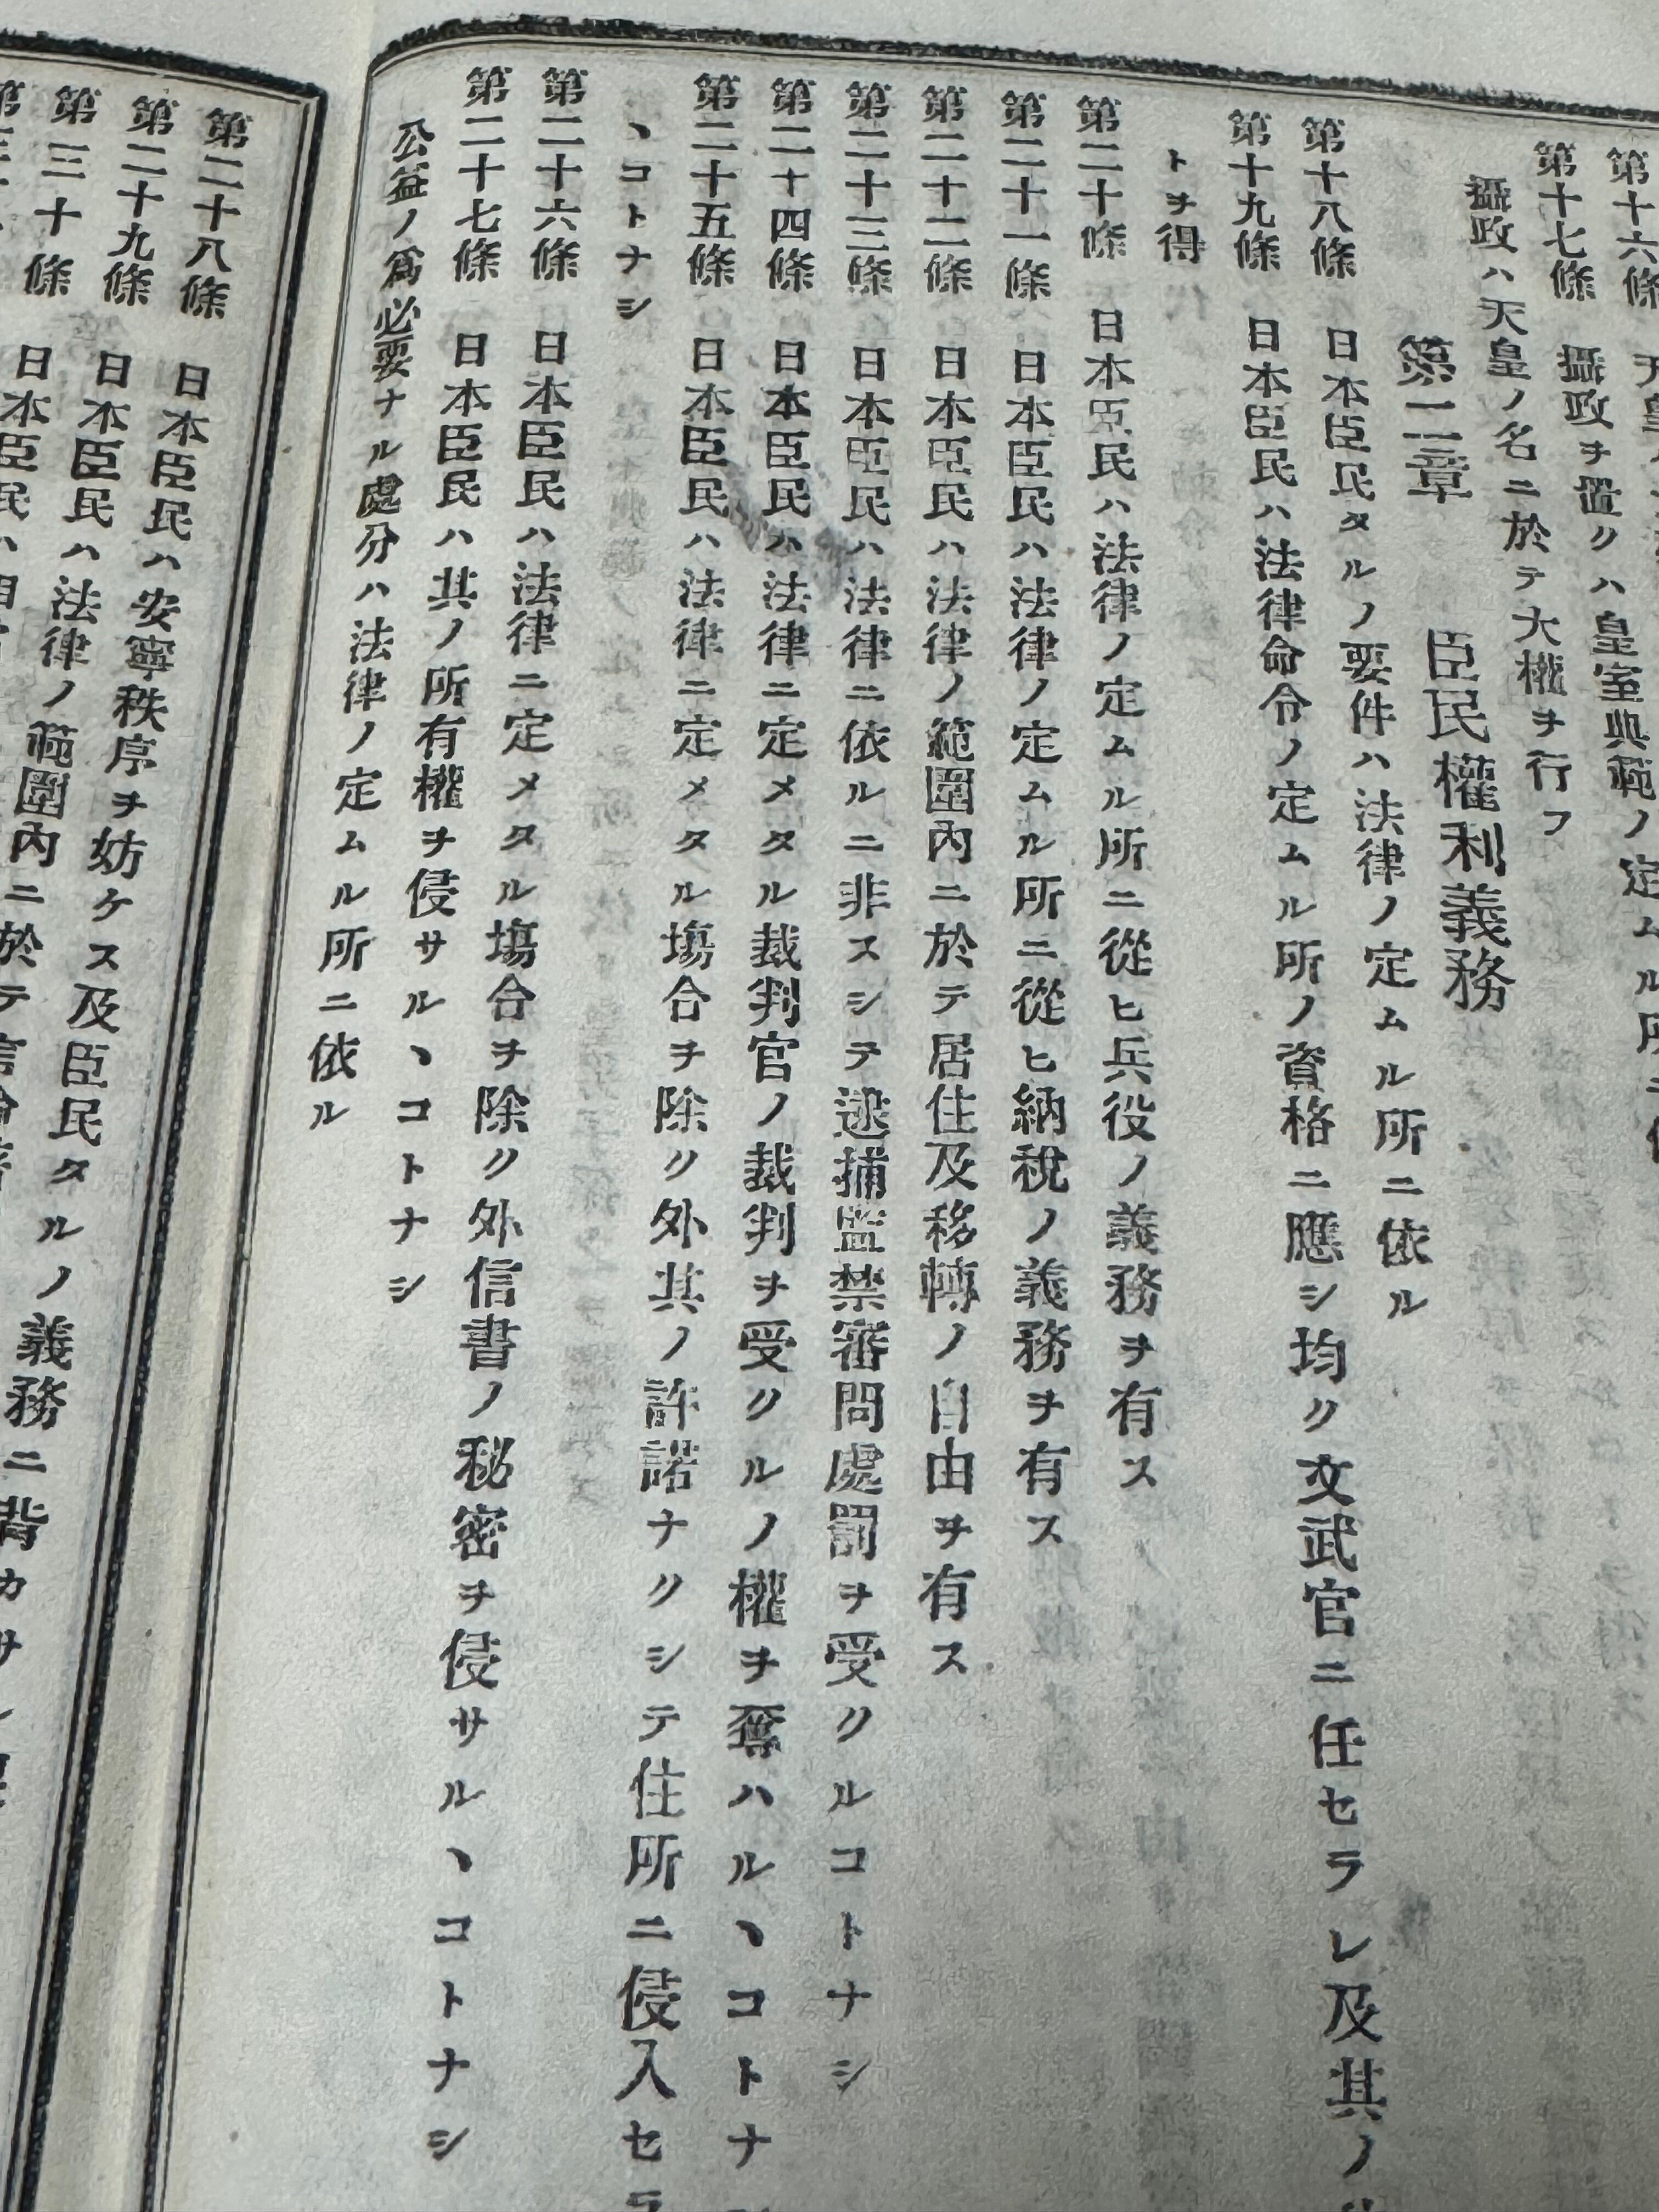 第十六條 天皇
第十七條 攝政ヲ置クハ皇室典範ノ定ムル所ニ依
攝政ハ天皇ノ名ニ於テ大權ヲ行フ
第二章 臣民權利義務
第十八條 日本臣民タルノ要件ハ法律ノ定ムル所ニ依ル
第十九條 日本臣民ハ法律命令ノ定ムル所ノ資格ニ應シ均ク文武官ニ任セラレ及其ノ
トヲ得
第二十條 日本臣民ハ法律ノ定ムル所ニ從ヒ兵役ノ義務ヲ有ス
第二十一條 日本臣民ハ法律ノ定ムル所ニ從ヒ納稅ノ義務ヲ有ス
第二十二條 日本臣民ハ法律ノ範圍內ニ於テ居住及移轉ノ自由ヲ有ス
第二十三條 日本臣民ハ法律ニ依ルニ非スシテ逮捕監禁審問處罰ヲ受クルコトナシ
第二十四條 日本臣民ハ法律ニ定メタル裁判官ノ裁判ヲ受クルノ權ヲ奪ハルヽコトナ
第二十五條 日本臣民ハ法律ニ定メタル塲合ヲ除ク外其ノ許諾ナクシテ住所ニ侵入セラ
ヽコトナシ
第二十六條 日本臣民ハ法律ニ定メタル塲合ヲ除ク外信書ノ秘密ヲ侵サルヽコトナシ
第二十七條 日本臣民ハ其ノ所有權ヲ侵サルヽコトナシ
公益ノ爲必要ナル處分ハ法律ノ定ムル所ニ依ル
第二十八條 日本臣民ハ安寧秩序ヲ妨ケス及臣民タルノ義務ニ背カサル
第二十九條 日本臣民ハ法律ノ範圍內ニ於テ言論著
第三十條 日本臣民ハ相當